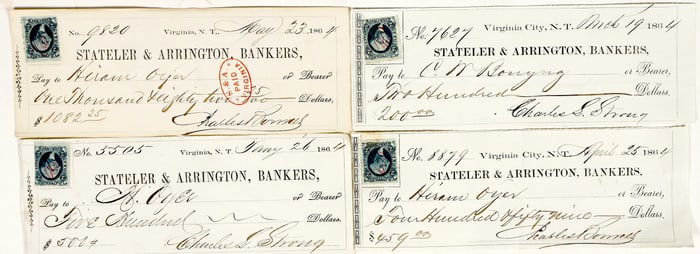 No. 9820 Virginia, N. T., May 23, 1864
STATELER & ARRINGTON, BANKERS,
Pay to Hiram Oyer or Bearer
One Thousand Eighty two 25 Dollars,
$1082 25
S & A PAID VIRGINIA
No. 7627 Virginia City, N. T. March 19 1864
STATELER & ARRINGTON, BANKERS,
Pay to C. W. or Bearer,
Two Hundred Dollars.
200.00 Charles L. Strong
No. 5505 Virginia, N. T. Jany 26 1864
STATELER & ARRINGTON, BANKERS,
Pay to H. Oyer or Bearer
Five Hundred Dollars.
Charles L. Strong
No. 8879 Virginia City, N. T. April 25 1864
STATELER & ARRINGTON, BANKERS.
Pay to Hiram Oyer or Bearer,
Four Hundred fifty nine Dollars.
$459.00